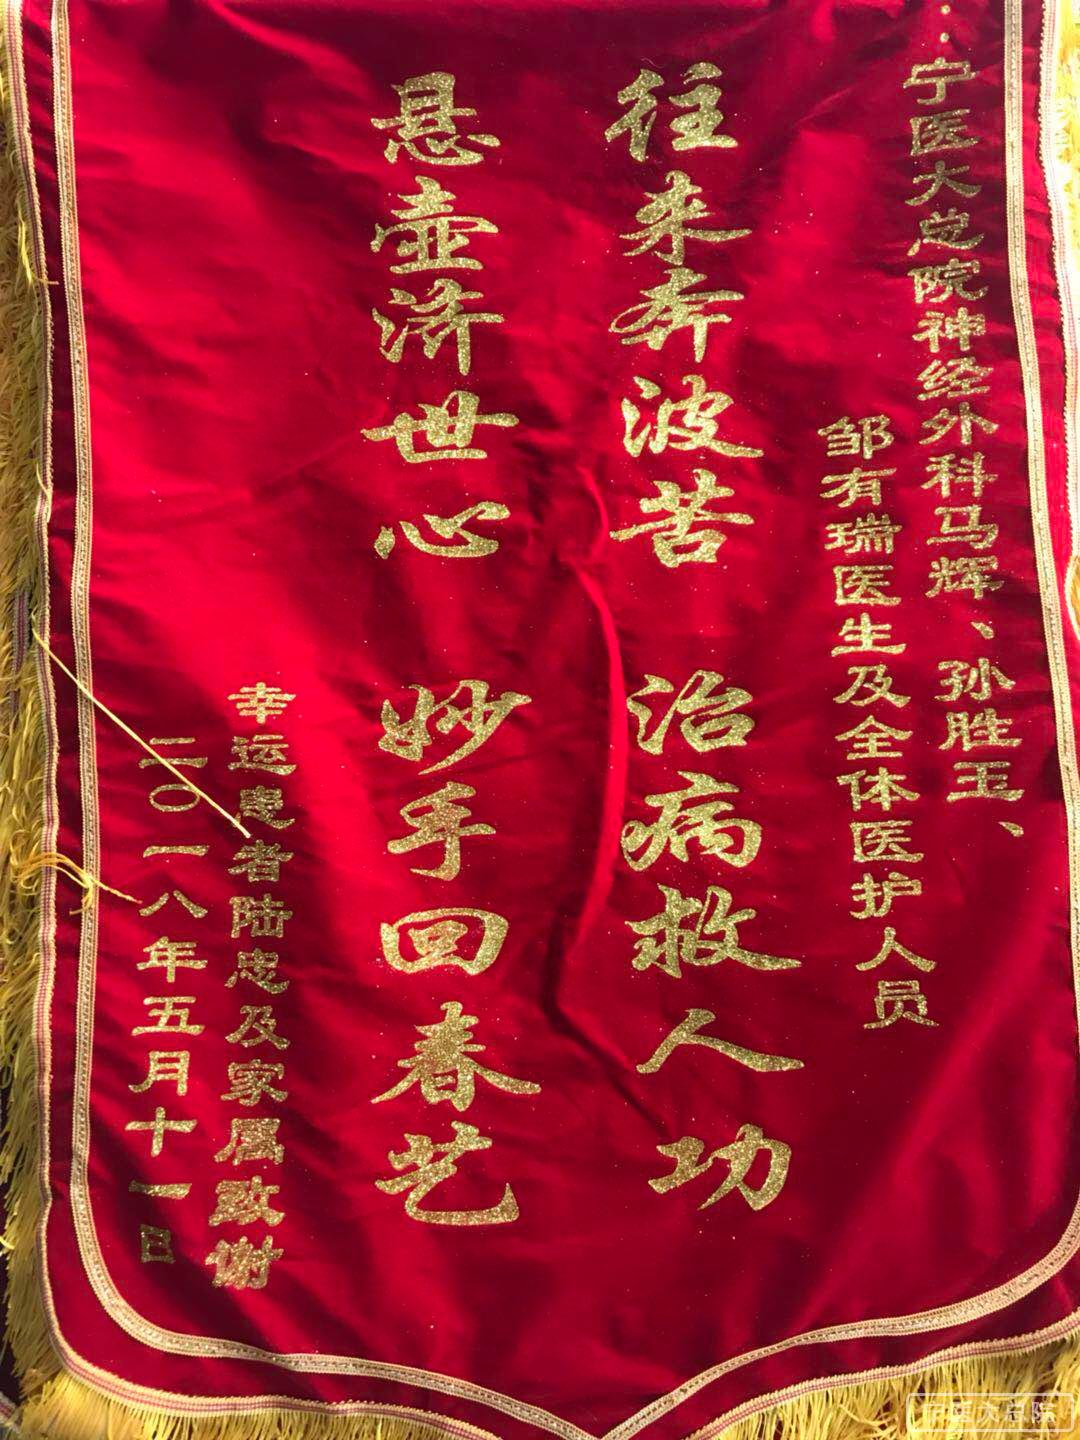 宁医大总院神经外科马辉、孙胜玉、
邹有瑞医生及全体医护人员
往来奔波苦 治病救人功
悬壶济世心 妙手回春艺
幸运患者陆忠及家属致谢
二〇一八年五月十一日
宁医大总院